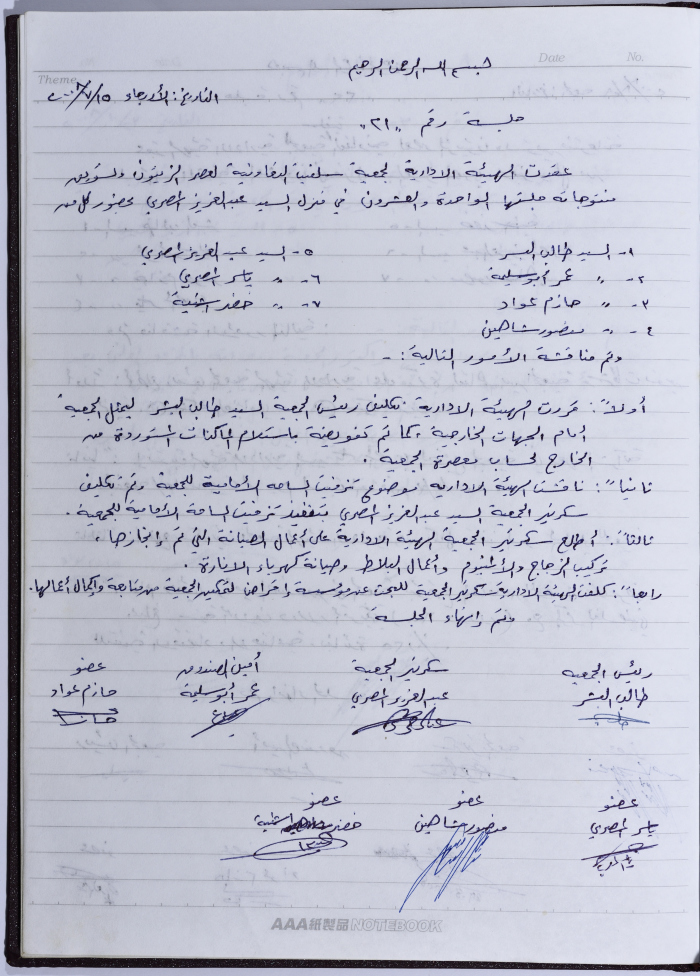 Theme
Date
No.
بسم الله الرحمن الرحيم
التاريخ: الأربعاء ١٥/٧/
جلسة رقم "٢١"
عقدت الهيئة الادارية لجمعية سلفيت التعاونية لعصر الزيتون وتسويق
منتوجاته جلستها الواحدة والعشرون في منزل السيد عبد العزيز المصري بحضور كل من
١- السيد طالب البشر
٥- السيد عبد العزيز المصري
٢- " عمر أبو سليمة
٦- " ياسر المصري
٣- " حازم عواد
٧- " خضر اشتية
٤- " منصور شاهين
وتم مناقشة الأمور التالية:-
أولاً: قررت الهيئة الادارية تكليف رئيس الجمعية السيد طالب البشر ليمثل الجمعية
أمام الجهات الخارجية، كما تم تفويضه باستلام الماكنات المستوردة من
الخارج لحساب معصرة الجمعية.
ثانياً: ناقشت الهيئة الادارية موضوع تزفيت الساحه الأمامية للجمعية وتم تكليف
سكرتير الجمعية السيد عبد العزيز المصري بتنفيذ تزفيت الساحة الأمامية للجمعية.
ثالثاً: أطلع سكرتير الجمعية الهيئة الادارية على أعمال الصيانة التي تم إنجازها،
تركيب الزجاج والألمنيوم وأعمال البلاط وصيانة كهرباء الانارة.
رابعاً: كلفت الهيئة الادارية سكرتير الجمعية للبحث عن مؤسسة إقراض لتمكين الجمعية من متابعة وإكمال أعمالها.
وتم إنهاء الجلسه
رئيس الجمعيه
سكرتير الجمعية
أمين الصندوق
عضو
طالب البشر
عبد العزيز المصري
عمر أبو سليمة
حازم عواد
عضو
عضو
عضو
ياسر المصري
منصور شاهين
خضر اشتية
AAA紙製品 NOTEBOOK